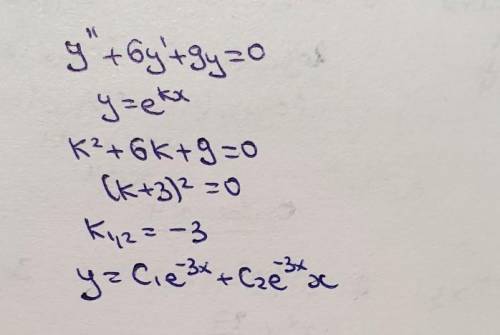 y'' + 6y' + 9y = 0
y = e^{kx}
k² + 6k + 9 = 0
(k+3)² = 0
k₁,₂ = -3
y = C₁e^{-3x} + C₂e^{-3x}x